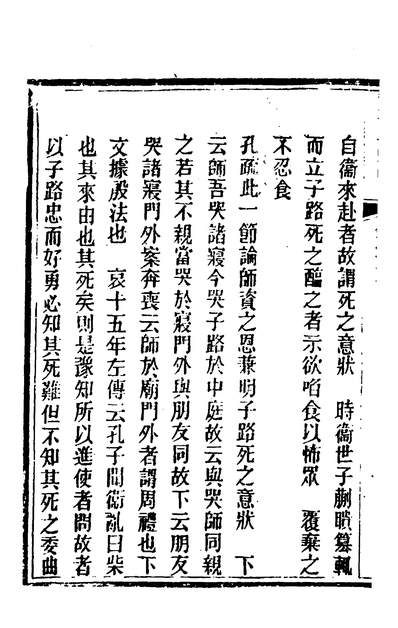 自衞來赴者故謂死之意狀　時衞世子蒯聵簒輒
而立子路死之醢之者示欲啗食以怖眾　覆棄之
不忍食
孔疏此一節論師資之恩兼明子路死之意狀　下
云師吾哭諸寢今哭子路於中庭故云與哭師同親
之若其不親當哭於寢門外與朋友同故下云朋友
哭諸寢門外案奔喪云師於廟門外者謂周禮也下
文據殷法也　哀十五年左傳云孔子聞衞亂曰柴
也其來由也其死矣則是豫知所以進使者問故者
以子路忠而好勇必知其死難但不知其死之委曲